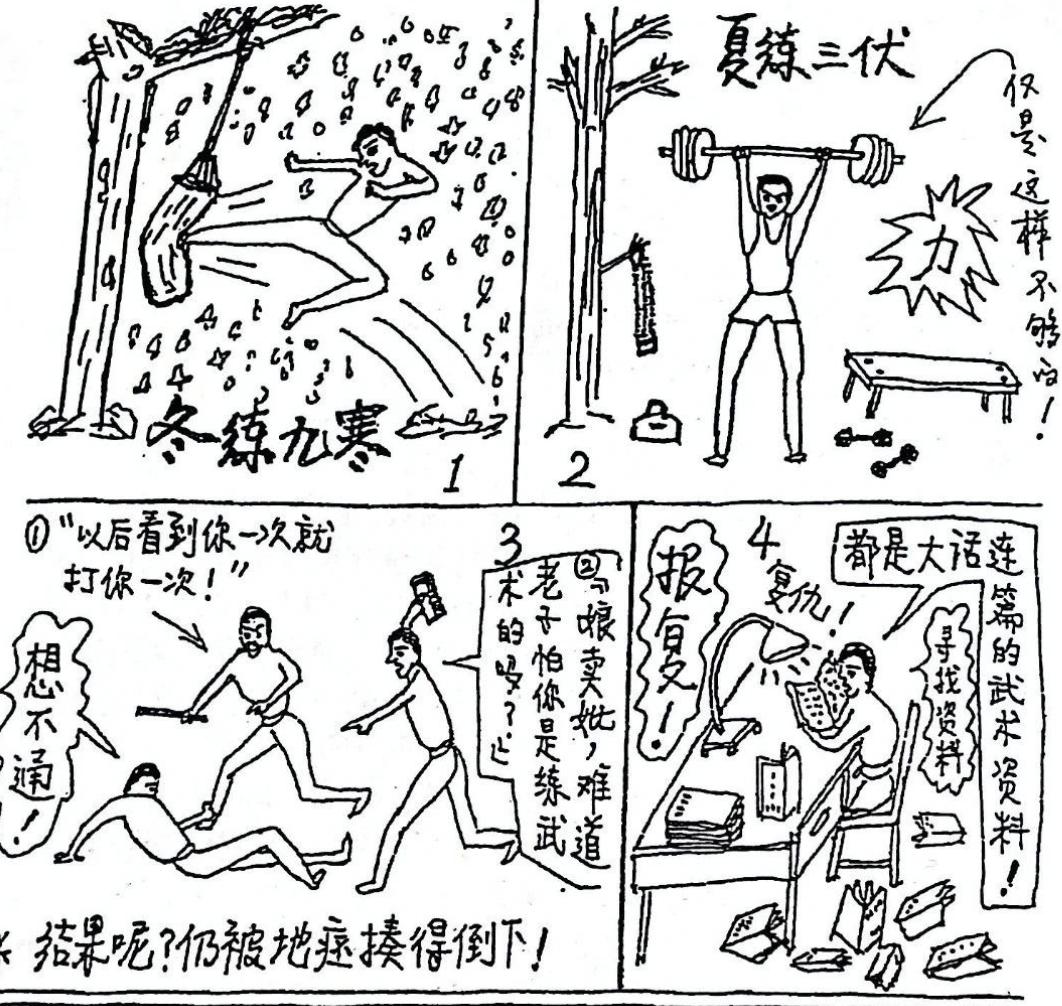 冬练九寒
1
夏练三伏
仅是这样不够的!
力
2
①“以后看到你一次就
打你一次!”
3
②「娘卖妣,难道
老子怕你是练武
术的吗?」
想不
通!
结果呢?仍被地痞揍得倒下!
4
报复!
复仇!
都是大话连
篇的武术资料!
寻找资料